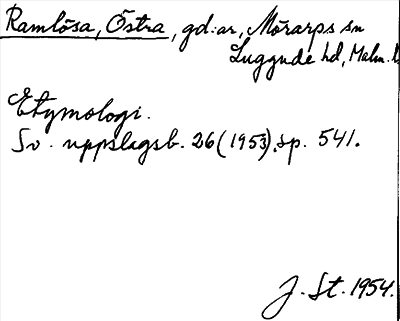 Ramlösa, Östra, gd:ar, Mörarps sn
Luggude hd, Malm. l.
Etymologi.
Sv. uppslagsb. 26 (1953), sp. 541.
J. St. 1954.